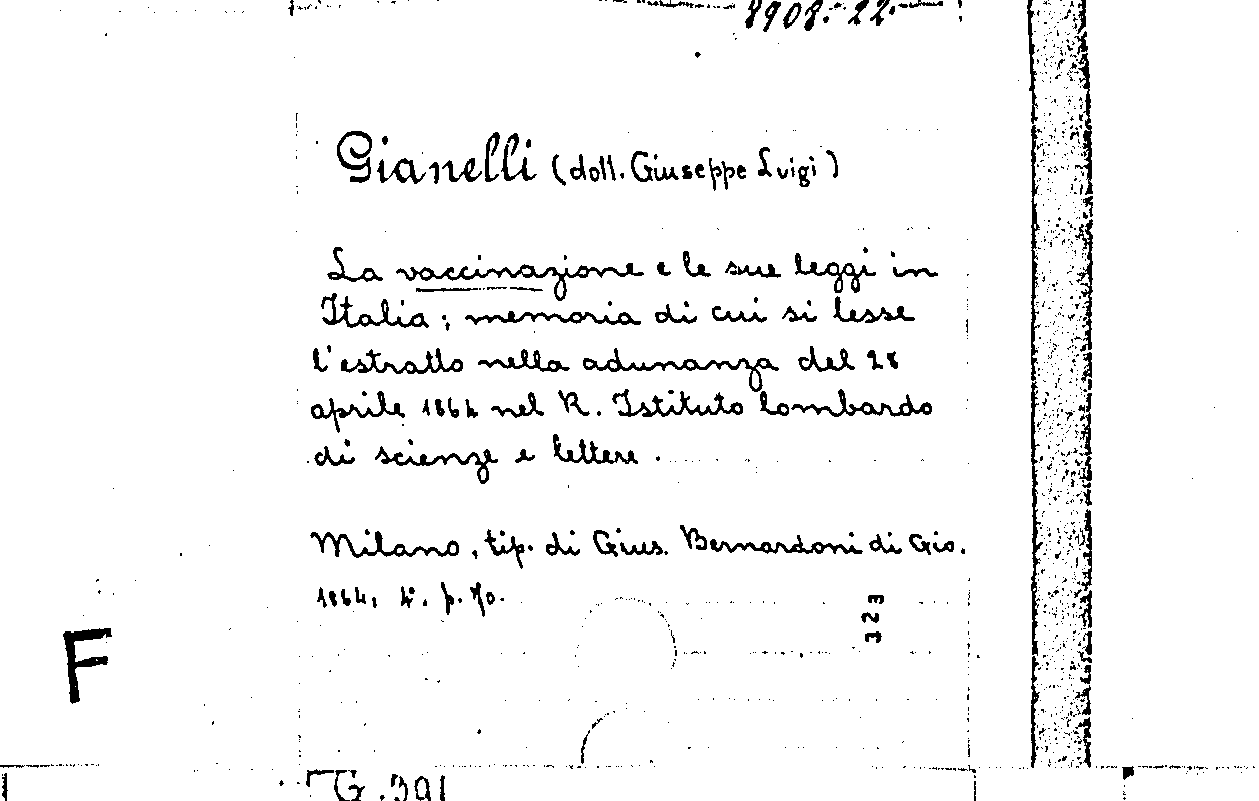 8908. 22.
Gianelli (dott. Giuseppe Luigi)
La vaccinazione e le sue leggi in
Italia; memoria di cui si lesse
l'estratto nella adunanza del 28
aprile 1864 nel R. Istituto lombardo
di scienze e lettere.
Milano, tip. di Gius. Bernardoni di Gio.
1864, 4°. p. 70.
323
F
G.391